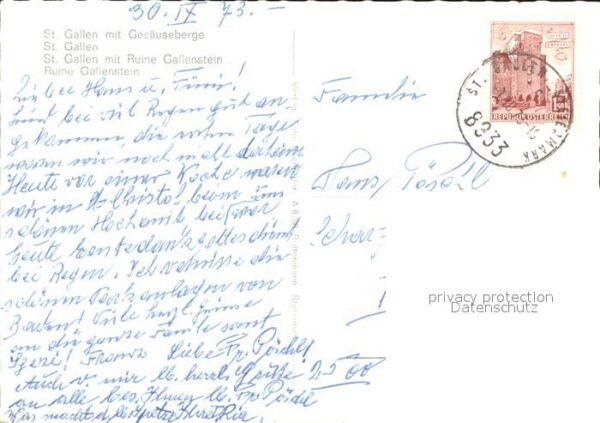 30. IX 73. -
St. Gallen mit Gesäuseberge
St. Gallen
St. Gallen mit Ruine Gallenstein
Ruine Gallenstein
Hans u.
sind bei viel Regen gut an
gekommen, die ersten Tage
waren wir noch nicht daheim
Heute vor einer Woche waren
wir in St. Christof beim
schönen Hochamt bei
heute Erntedankgottesdienst
bei Regen. Ich vermisse die
schönen Parkanlagen von
Baden! Viele herzl. Grüsse
an die ganze Familie samt
! Franz Liebe Fr. Pöschl!
Auch v. mir lb. herzl. Grüße
an alle bes. Ihnen lb. Fr. Pöschl
Was macht d. lb.
Familie
Hans Pöschl
2500
REPUBLIK ÖSTERREICH
ST. GALLEN STEIERMARK
8933
privacy protection
Datenschutz